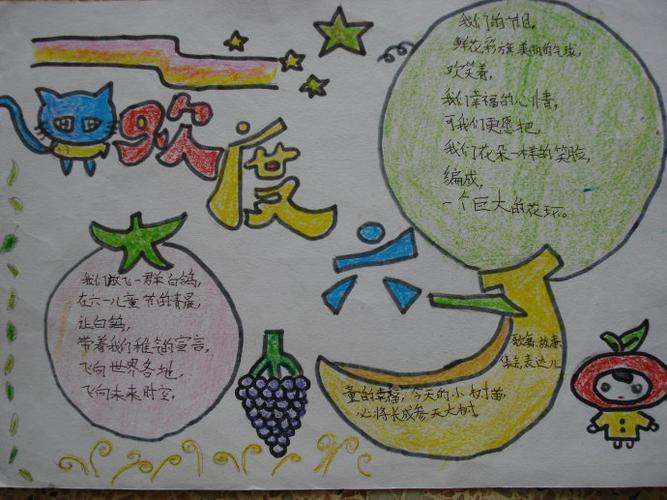 欢度
六一
我们的节日，
鲜花彩旗美丽的气球，
欢笑着，
我们幸福的心情，
可我们更愿把，
我们花朵一样的笑脸，
编成，
一个巨大的花环。
我们放飞一群白鸽，
在六一儿童节的清晨，
让白鸽，
带着我们稚气的宣言，
飞向世界各地，
飞向未来时空。
歌舞、故事
集会，表达儿
童的幸福，今天的小树苗，
必将长成参天大树。